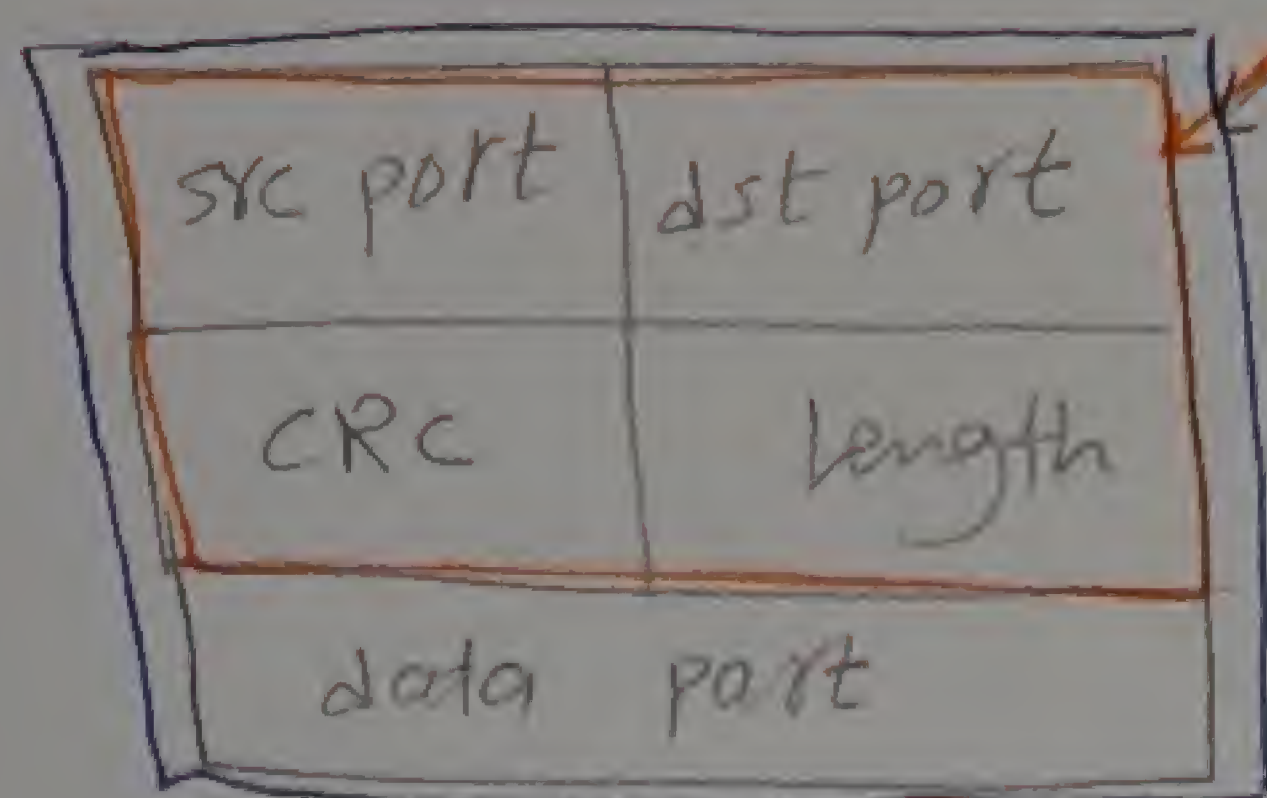 src port dst port
CRC length
data part